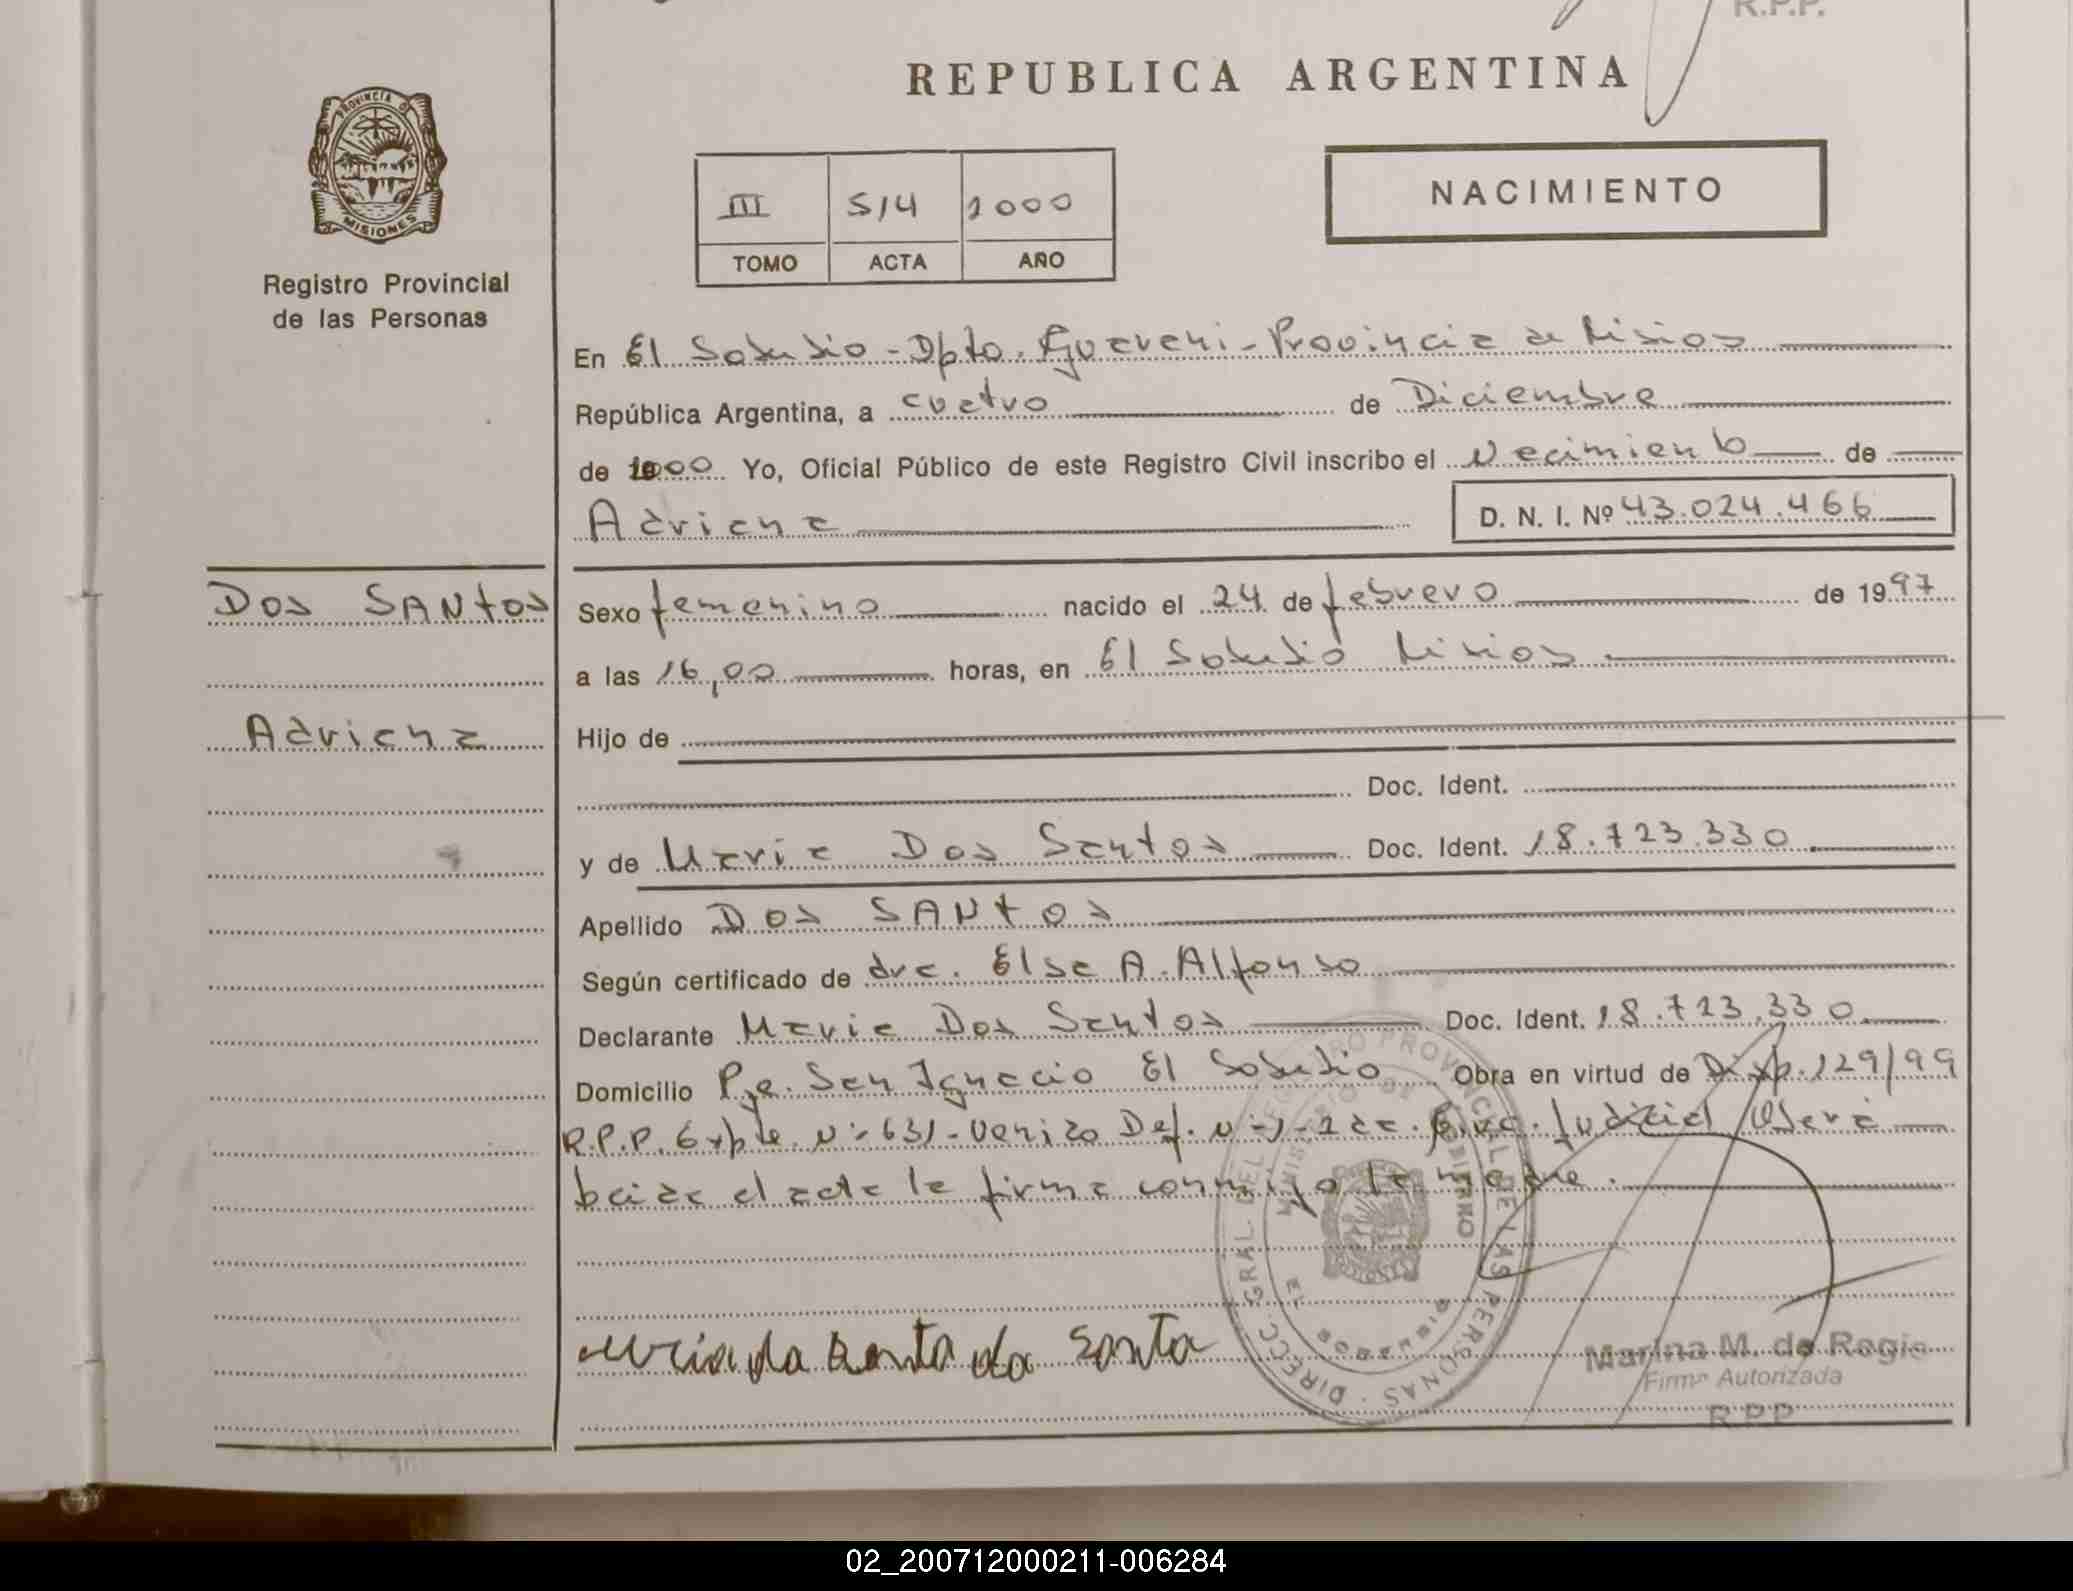 R.P.P.
REPUBLICA ARGENTINA
PROVINCIA DE
MISIONES
Registro Provincial
de las Personas
III 514 2000
TOMO ACTA AÑO
NACIMIENTO
En El Soberbio - Dpto. Guarani - Provincia de Misiones
República Argentina, a cuatro de Diciembre
de 2000 Yo, Oficial Público de este Registro Civil inscribo el Nacimiento de
Adriana D. N. I. Nº 43.024.466
DOS SANTOS
Adriana
Sexo femenino nacido el 24 de febrero de 1997
a las 16,00 horas, en El Soberbio Misiones
Hijo de
Doc. Ident.
y de Maria Dos Santos Doc. Ident. 18.723.330
Apellido DOS SANTOS
Según certificado de dra. Elsa A. Alfonso
Declarante Maria Dos Santos Doc. Ident. 18.723.330
Domicilio Pje. San Ignacio El Soberbio Obra en virtud de Disp. 129/99
R.P.P. Expte. Nº 631 - Def. Nº 1 - 2da. Judicial Oberá
la firma conmigo la madre.
DIRECC. GRAL. DEL REGISTRO PROVINCIAL DE LAS PERSONAS
MINISTERIO DE GOBIERNO
EL SOBERBIO
Marina M. de Regis
Firma Autorizada
R.P.P.
02_200712000211-006284